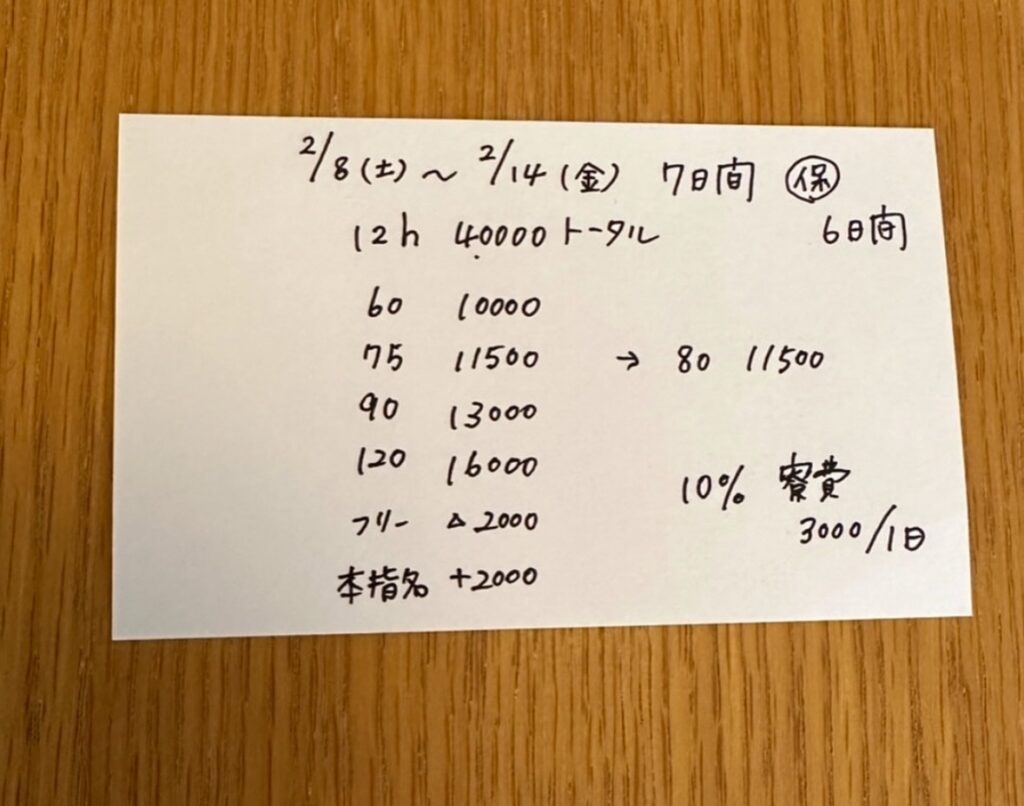 2/8(土)〜2/14(金) 7日間 ㊑保
12h 40000 トータル 6日間
60 10000
75 11500 → 80 11500
90 13000
120 16000
10% 寮費
フリー △2000
3000/1日
本指名 +2000